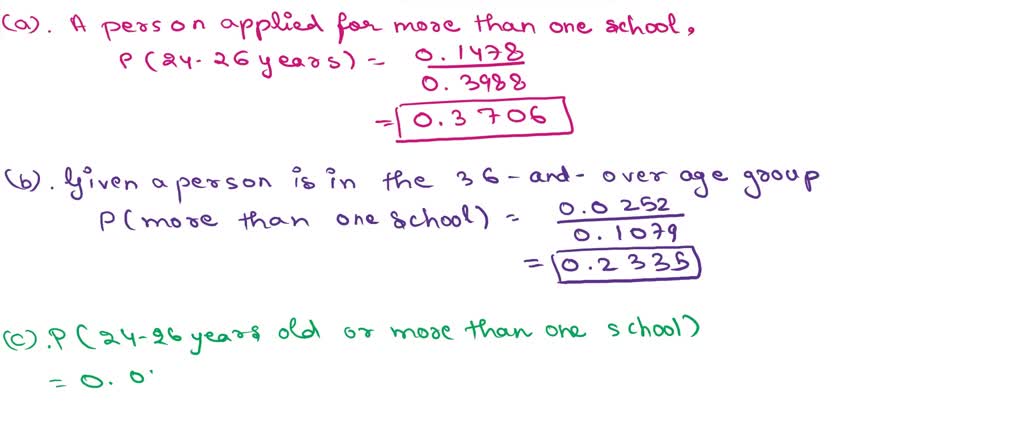 (a). A person applied for more than one school,
P(24-26 years) = 0.1478
0.3988
= 0.3706
(b). Given a person is in the 36-and-over age group
P(more than one school) = 0.0252
0.1079
= 0.2335
(c). P(24-26 years old or more than one school)
= 0.0